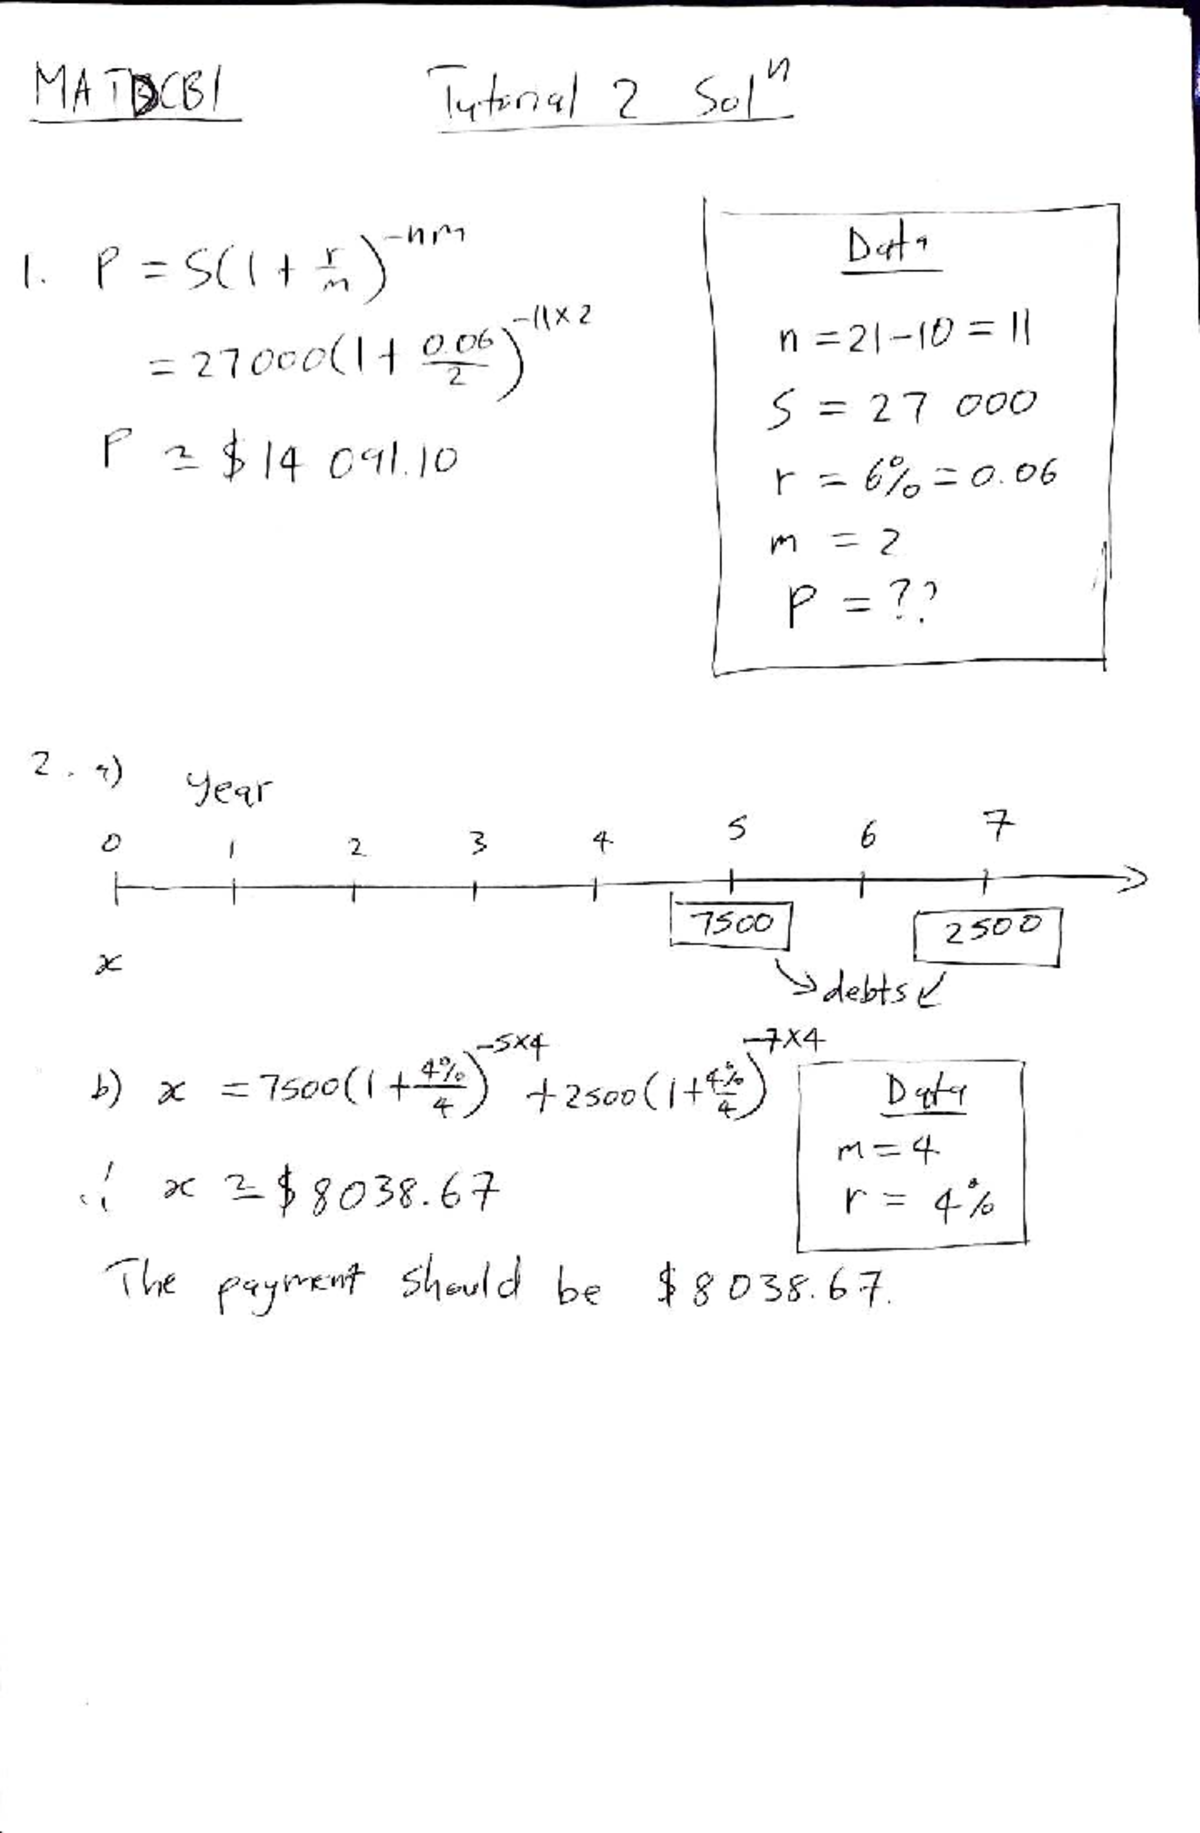 MATBCB1
Tutorial 2 Solⁿ
1. P = S(1 + r/m)^-nm
= 27000(1 + 0.06/2)^-11×2
P ≃ $14 091.10
Data
n = 21-10 = 11
S = 27 000
r = 6% = 0.06
m = 2
P = ??
2. a) Year
0 1 2 3 4 5 6 7
7500 2500
x
debts
b) x = 7500(1 + 4%/4)^-5×4 + 2500(1 + 4%/4)^-7×4
∴ x ≃ $8038.67
The payment should be $8038.67.
Data
m = 4
r = 4%